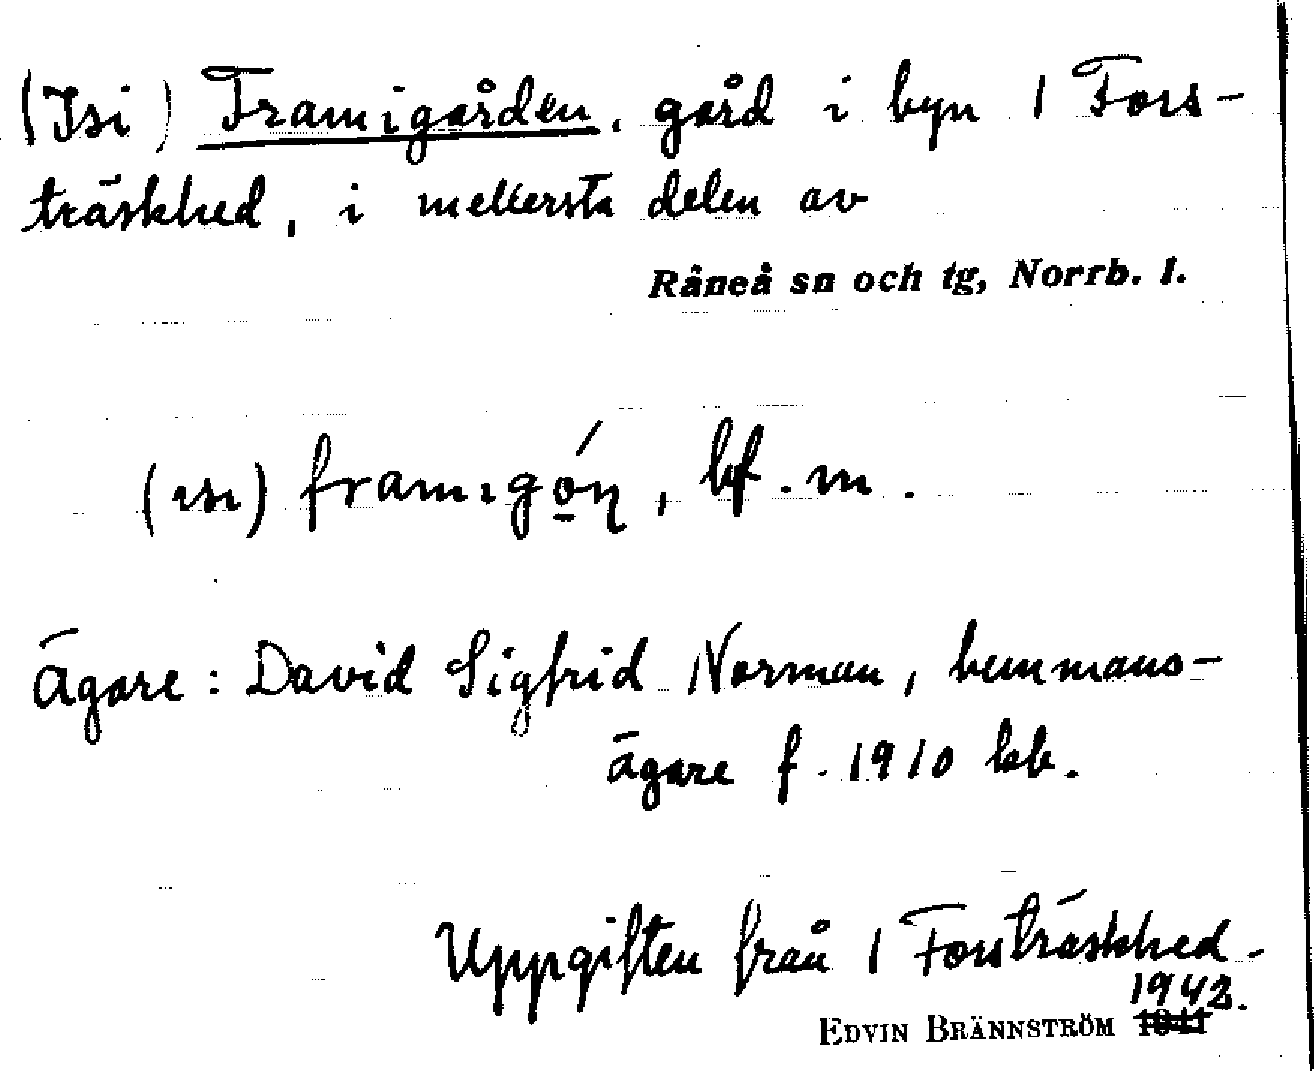 (Isi) Framigården, gård i byn 1 Fors-
träskhed, i mellersta delen av
Råneå sn och tg, Norrb. l.
(ısı) framıgó̱n̥, bf. m.
Ägare: David Sigfrid Norman, hemmans-
ägare f. 1910 kb.
Uppgiften från 1 Forsträskhed.
1942.
EDVIN BRÄNNSTRÖM 1941